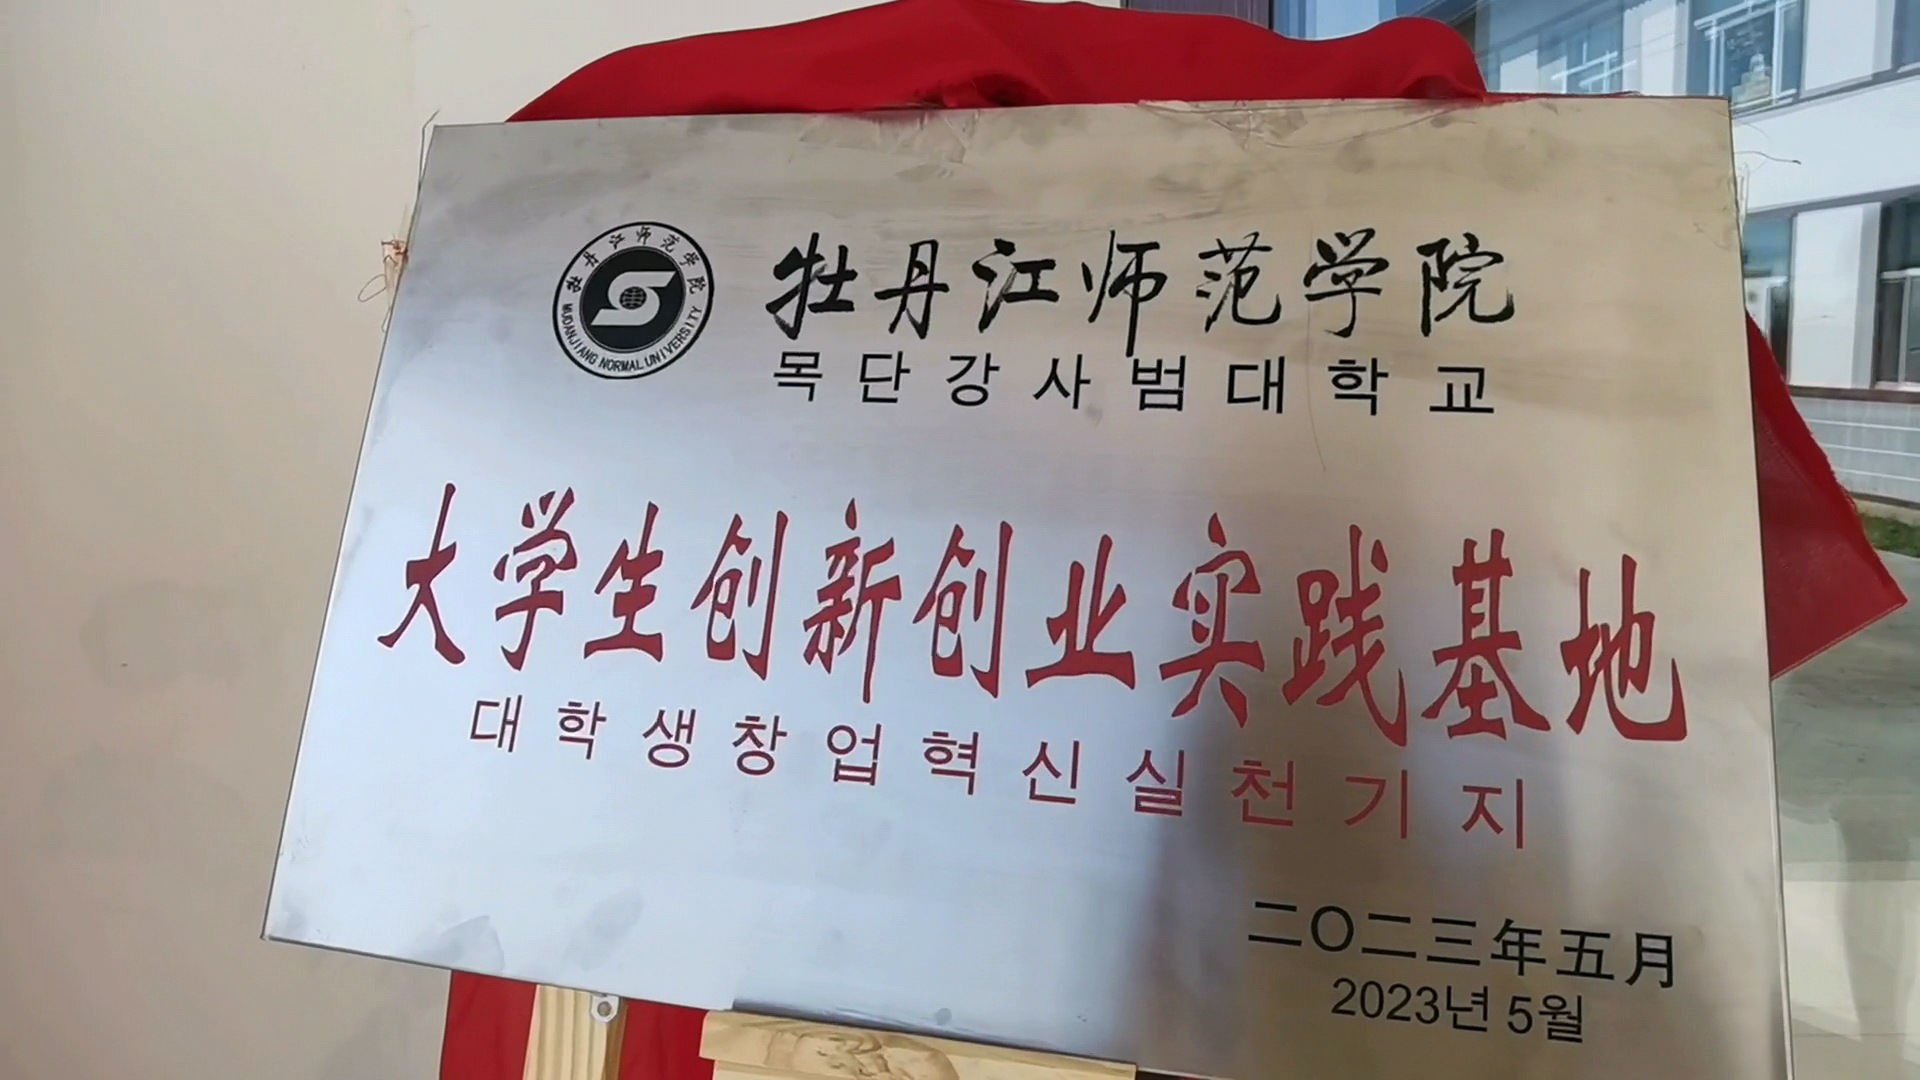 牡丹江师范学院
MUDANJIANG NORMAL UNIVERSITY
牡丹江师范学院
목단강사범대학교
大学生创新创业实践基地
대학생창업혁신실천기지
二〇二三年五月
2023년 5월